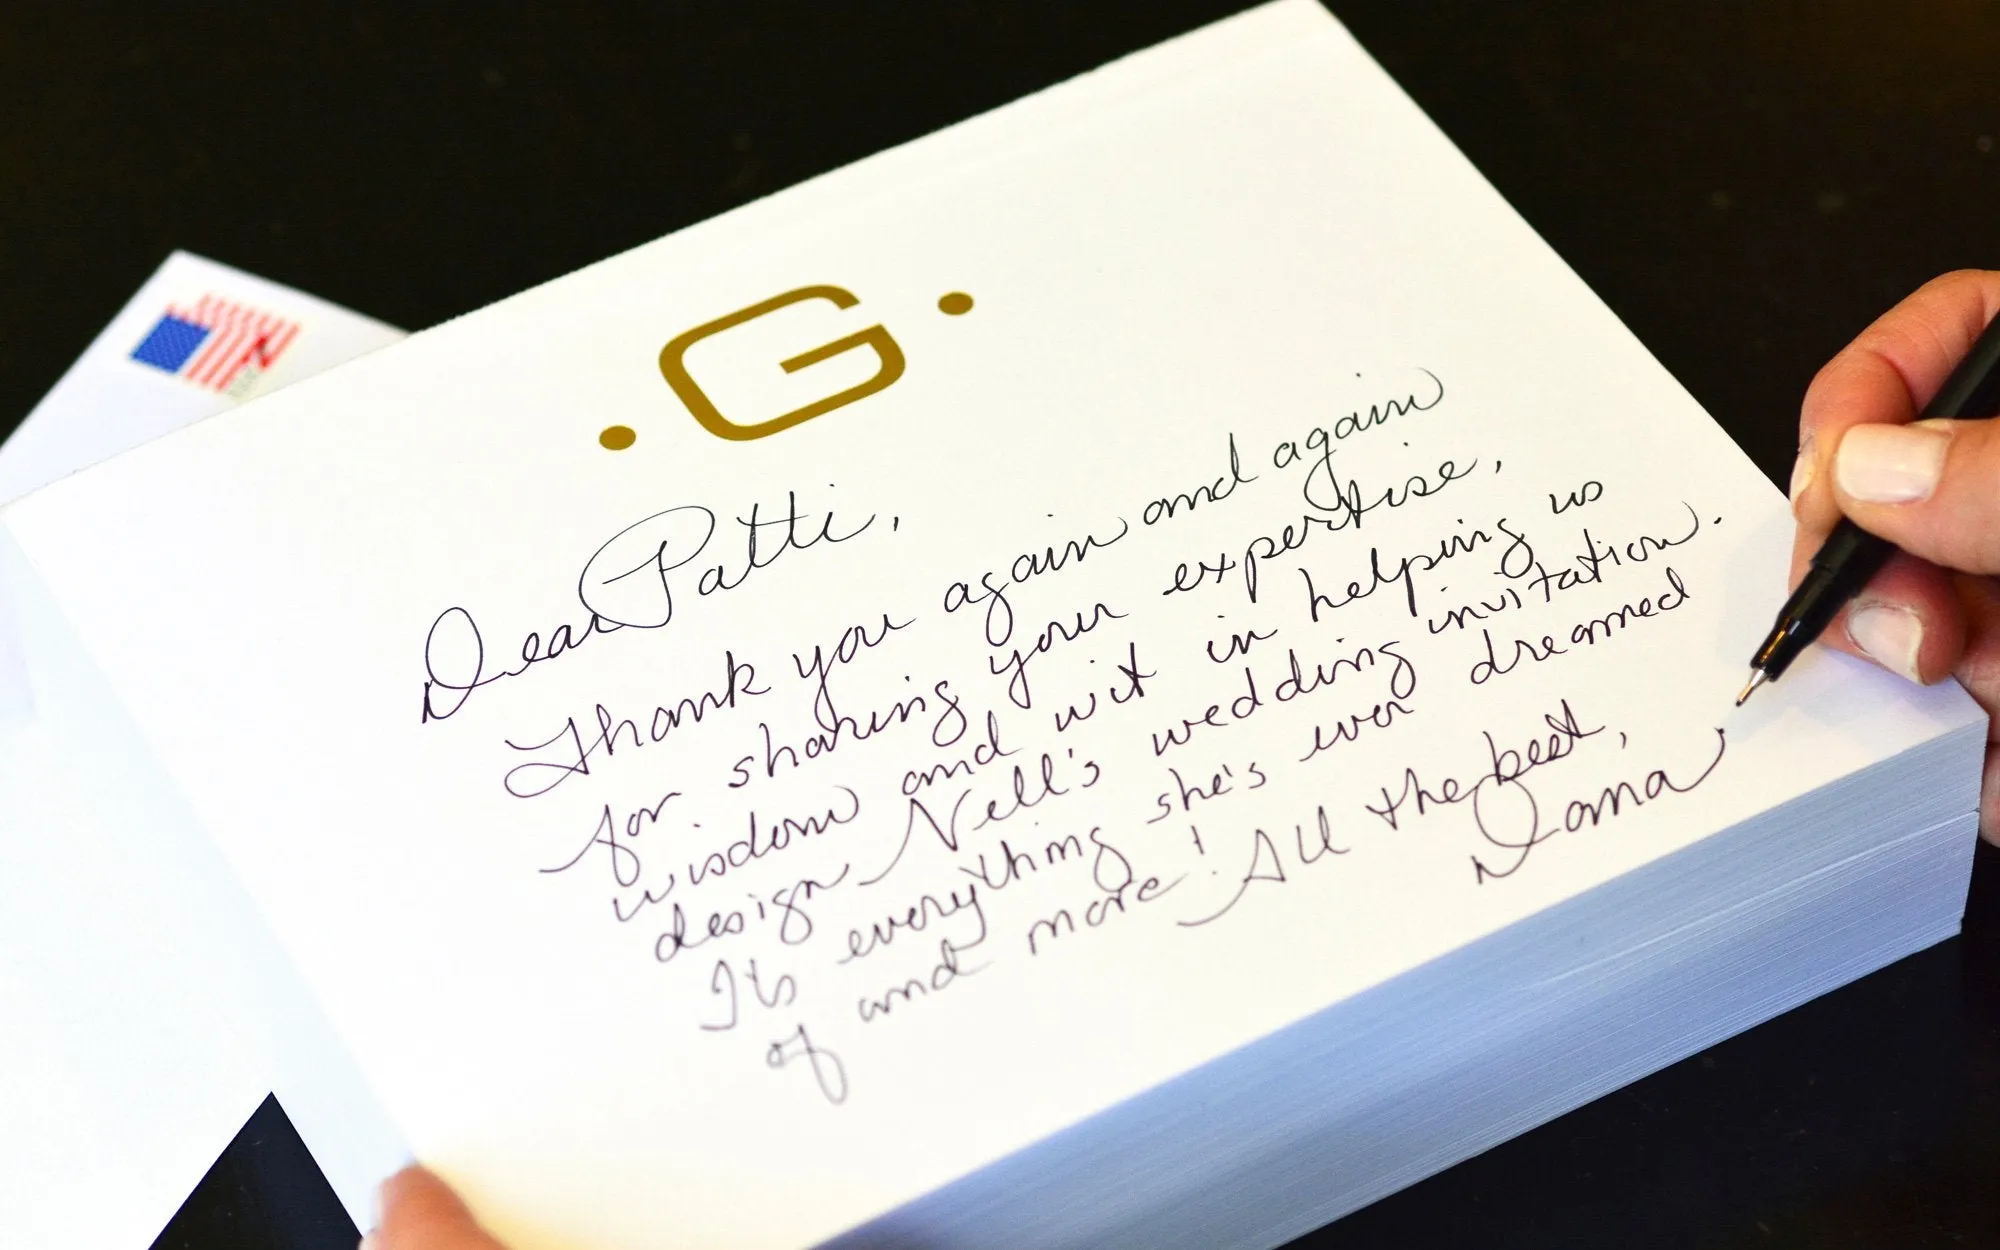 ·G·
Dear Patti,
Thank you again and again
for sharing your expertise,
wisdom and wit in helping us
design Nell's wedding invitation.
Its everything she's ever dreamed
of and more! All the best,
Dana